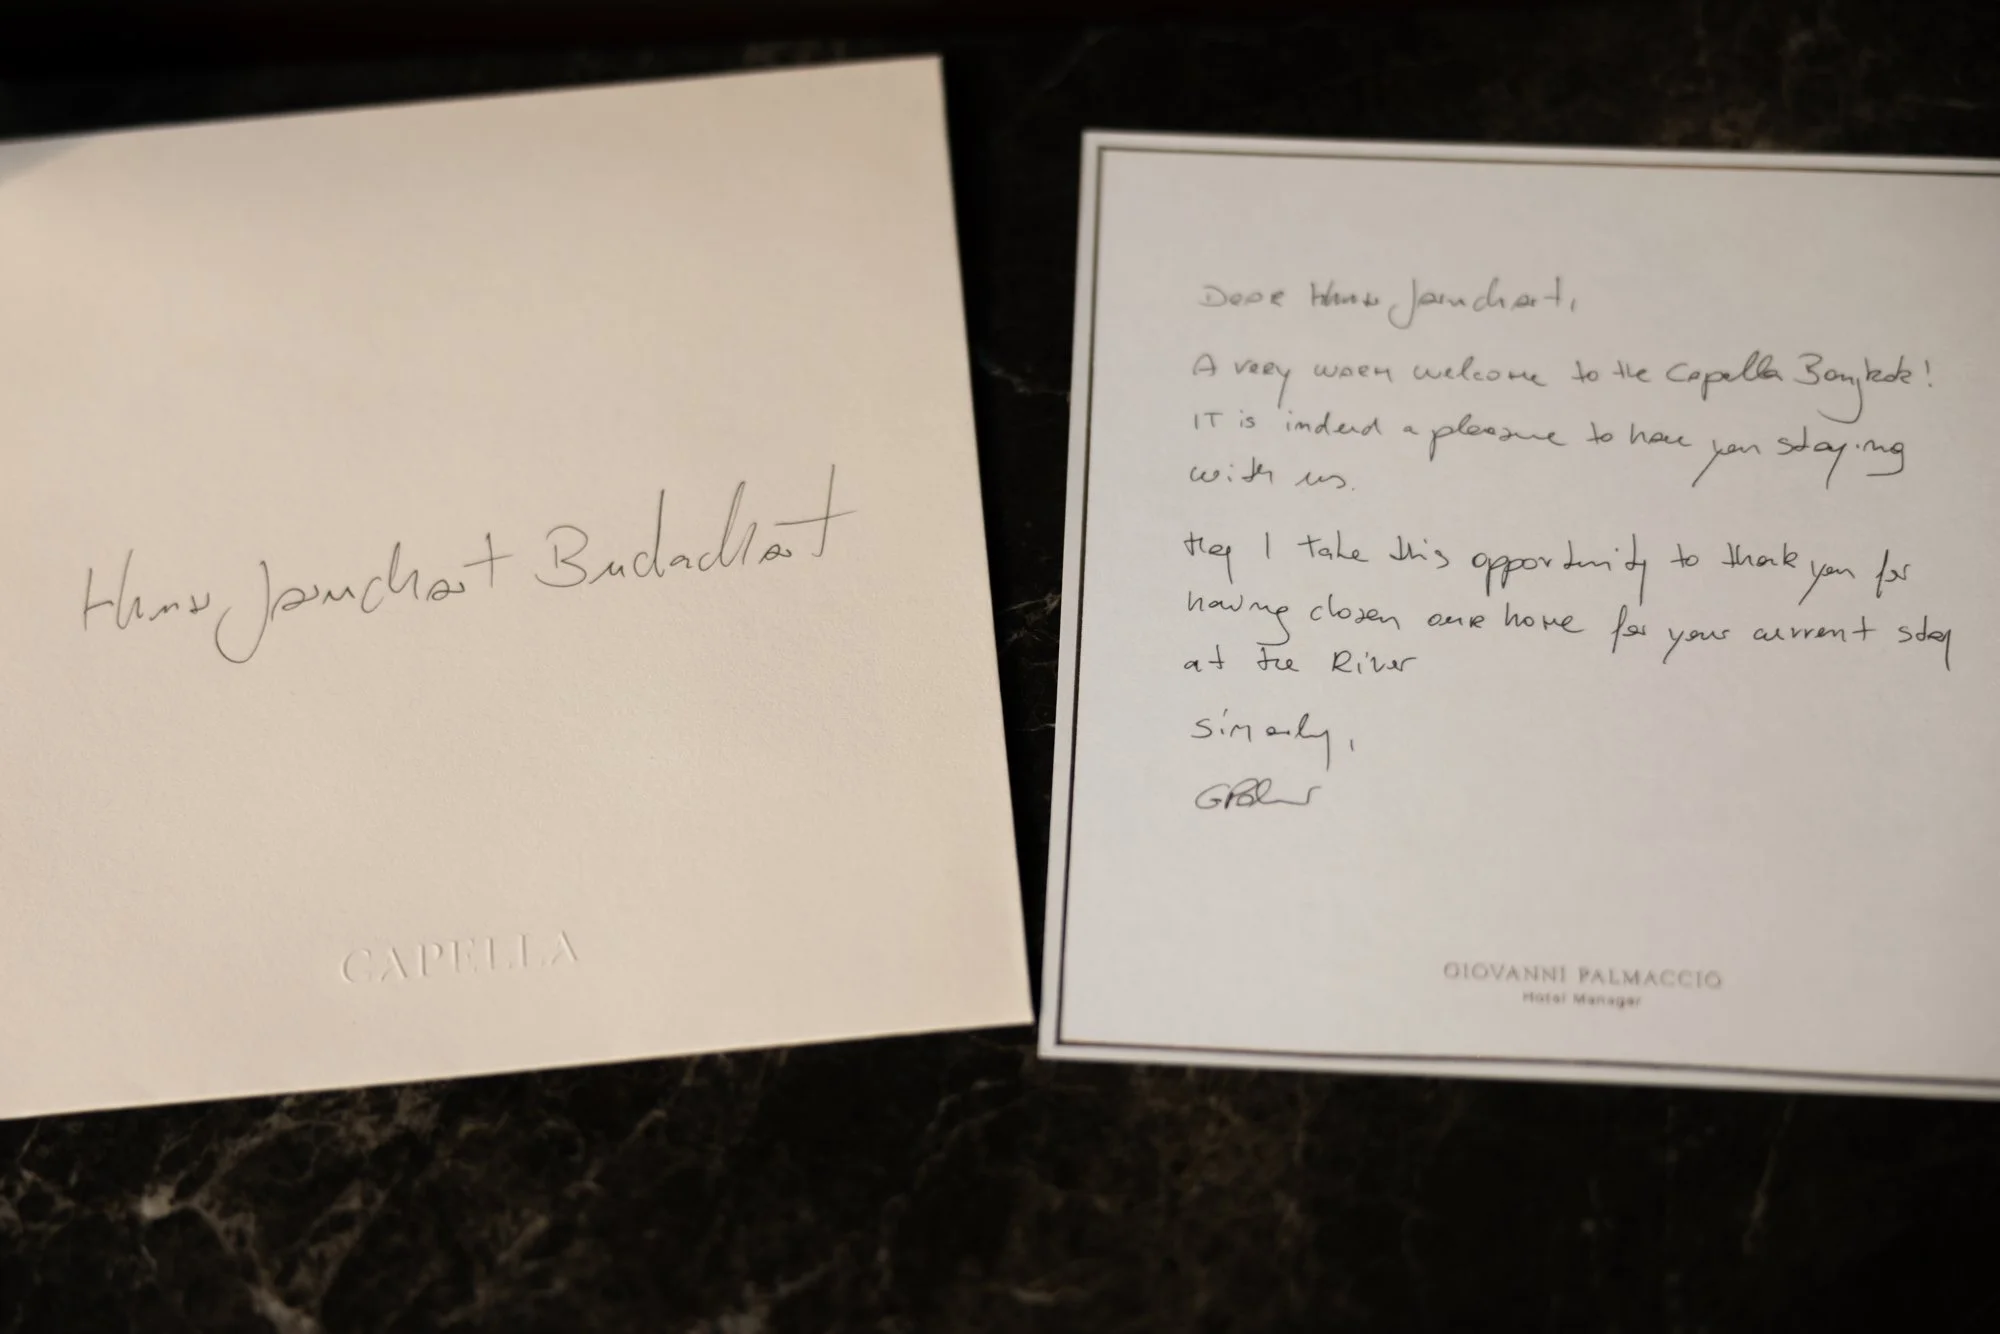 Khun Jamchart Budachart
CAPELLA
Dear Khun Jamchart,
A very warm welcome to the Capella Bangkok!
IT is indeed a pleasure to have you staying
with us.
May I take this opportunity to thank you for
having chosen our home for your current stay
at the River
Sincerely,
GIOVANNI PALMACCIO
Hotel Manager